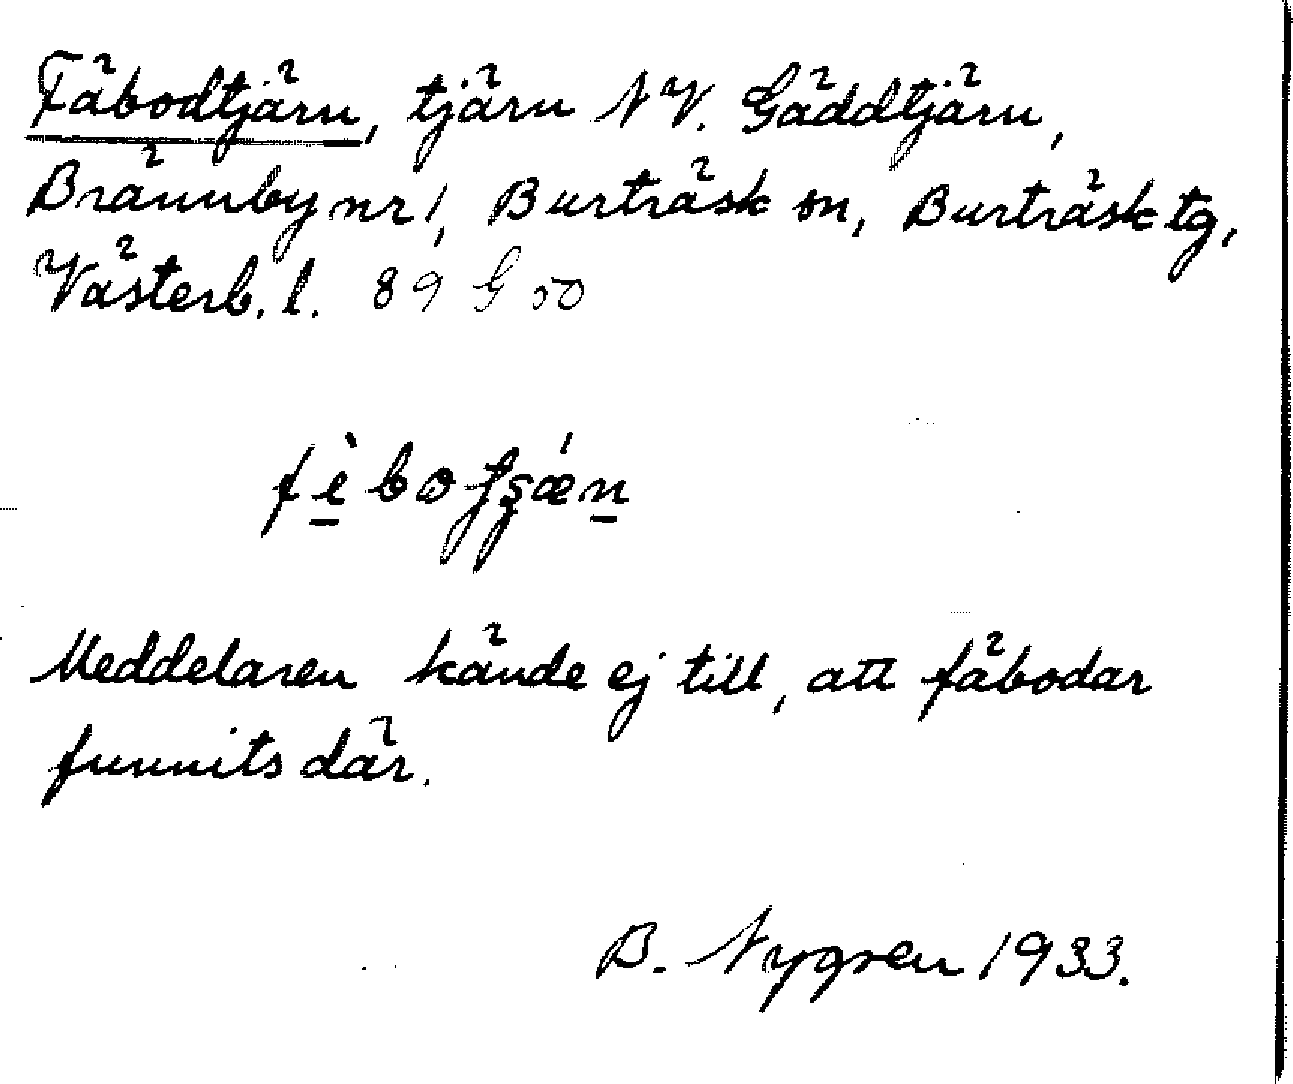 Fäbodtjärn, tjärn NV. Gäddtjärn,
Brännby nr 1, Burträsk sn, Burträsk tg,
Västerb. l. 89 G 50
Meddelaren kände ej till, att fäbodar
funnits där.
B. Nygren 1933.